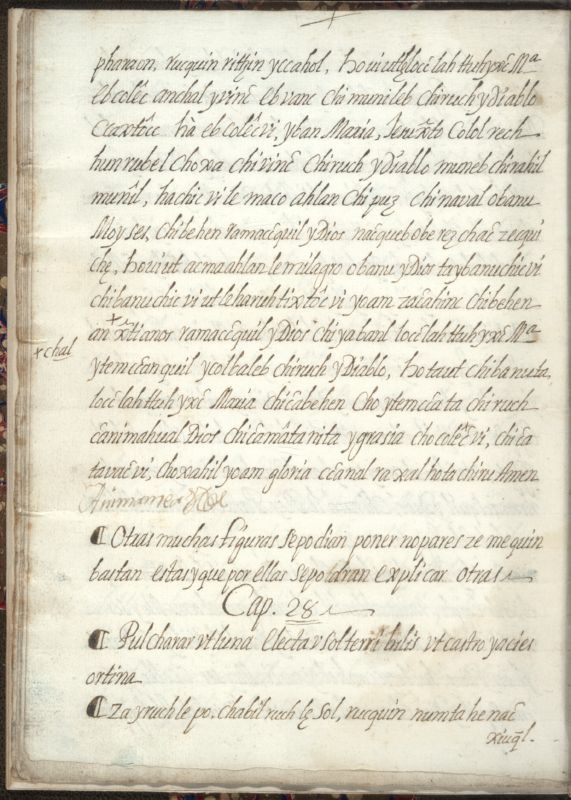 pharaon, rucquin rithin yccahol, ho viutzlocc lah tteh yxc Mª
eb colec anchal y vinc eb vanc chi munileb chiruch y diablo
ccaxtocc hà eb colec vi, yban Maria, Jesuxto Colol rech
hunrubel choxa chi vinc chiruch y diablo muneb chirahil
munil, hachic vi le maco ahlan chi puz chi naval obanu
Moyses, chi behen ramaccquil y Dios nacqueb obe rez chac zecqui
che, ho viut acma ahlan le milagro obanu y Dios ta ybanuchic vi
chi banuchic vi ut le haruh tixtoc vi yoam zacahinc chi behen
an xtianos ramaccquil y Dios chi yabanl locc lah tteh yxc Mª
+ chal
y temccanquil y colbaleb chiruch y Diablo, ho ta ut chi banu ta,
locc lah tteh yxc Maria chi cabehen cho ytemcca ta chiruch
canimahual Dios chi camàta nita y grasia cho colec vi, chi ca
tavac vi, choxahil yoam gloria ccanal raxal hota chiru Amen

¶ Otras muchas figuras se podian poner no pares ze me quin
bastan estas y que por ellas se podran explicar otras
Cap. 28
¶ Pulchara vt luna Electa v sol terribilis vt castro y acies
ortina
¶ Za y ruch le po. chabil ruch le sol, rucquin numta he nac
xiuql.